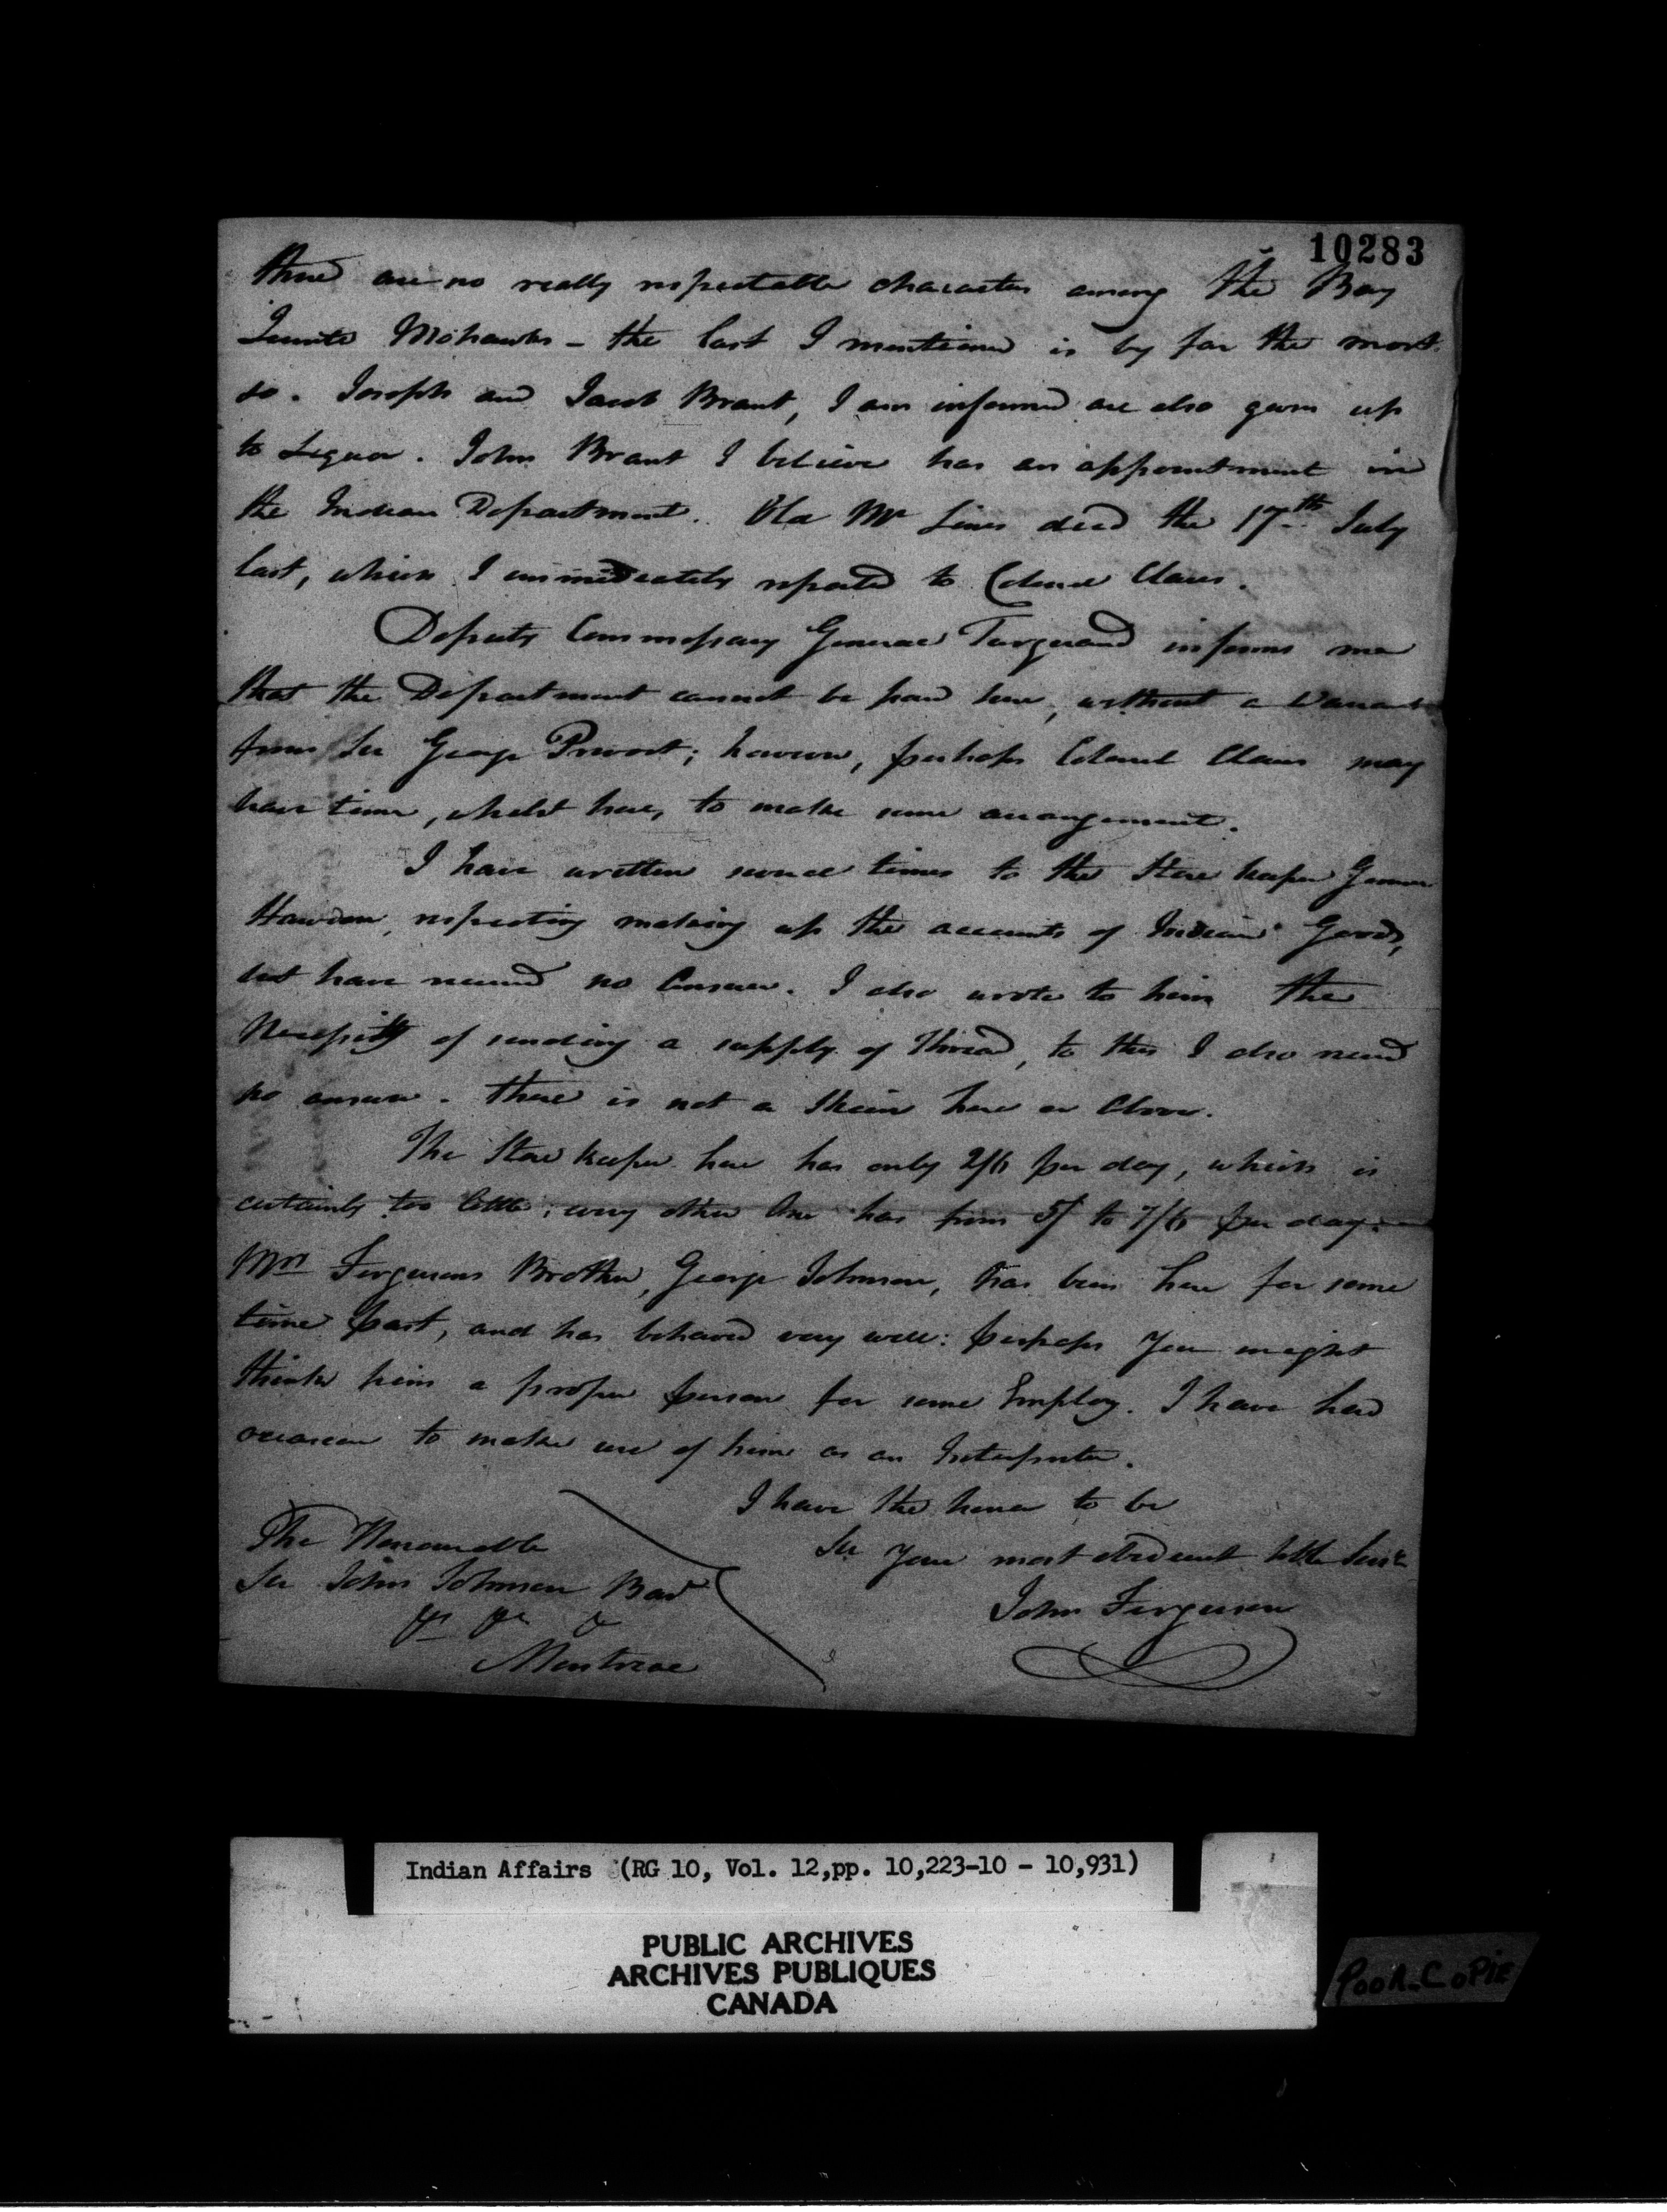 10283
there are no really respectable characters among the Bay
Quinté Mohawks - the last I mentioned is by far the most
so. Joseph and Jacob Brant, I am informed are also given up
to Liquor. John Brant I believe has an appointment in
the Indian Department. Old Mr Lines died the 17th July
last, which I immediately reported to Colonel Claus.
Deputy Commissary General Turquand informs me
that the Department cannot be paid here, without a Warrant
from Sir George Prevost; however, perhaps Colonel Claus may
have time, whilst here, to make some arrangement.
I have written several times to the Store keeper General
Hawdon, respecting making up the accounts of Indian Goods,
but have received no Answer. I also wrote to him the
Necessity of sending a supply of Thread, to this I also received
no answer. there is not a Skein here or above.
The Store keeper here has only 2/6 per day, which is
certainly too little; every other One has from 5/ to 7/6 per day.
Mrs Fergusons Brother, George Johnson, has been here for some
time past, and has behaved very well: perhaps You might
think him a proper person for some Employ. I have had
occasion to make use of him as an Interpreter.
I have the honor to be
Sir Your most obedient hble Servt
John Ferguson
The Honourable
Sir John Johnson Bart
&c &c &
Montreal
Indian Affairs (RG 10, Vol. 12, pp. 10,223-10 - 10,931)
PUBLIC ARCHIVES
ARCHIVES PUBLIQUES
CANADA
POOR COPIE